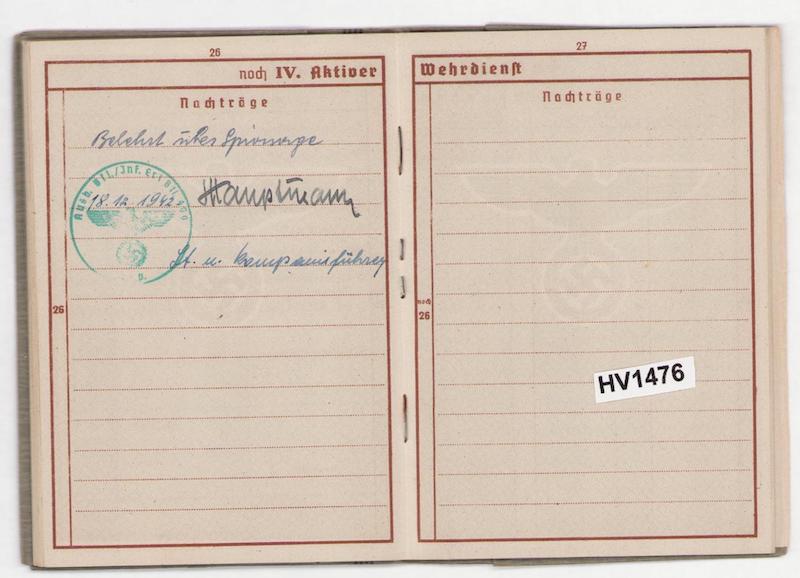 26
noch IV. Aktiver
Nachträge
Belehrt über Spionage
Ausb. Btl./Inf. Ers. Btl.
18.12.1942
Hauptmann
Lt. u. Kompanieführer
26
27
Wehrdienst
Nachträge
noch
26
HV1476